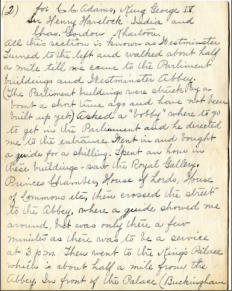 (2) for C. C. Adams, King George IV
Sir Henry Havelock - India and
Chas. Gordon Khartoum.
All this section is known as Westminster
turned to the left and walked about half
a mile till we came to the Parliment
buildings and Westminster Abbey.
(The Parliment buildings were struck by a
bomb a short time ago and have not been
built up yet) Asked a "bobby" where to go
to get in the Parliament and he directed
me to the entrance. Went in and bought
a guide for a shilling. Spent an hour in
these buildings - saw the Royal Gallery,
Princes Chamber, House of Lords, House
of Commons etc, then crossed the street
to the Abbey, where a guide showed me
around, but was only there a few
minutes as there was to be a service
at 3 pm. Then went to the Kings Palace
which is about half a mile from the
Abbey. In front of the Palace (Buckingham